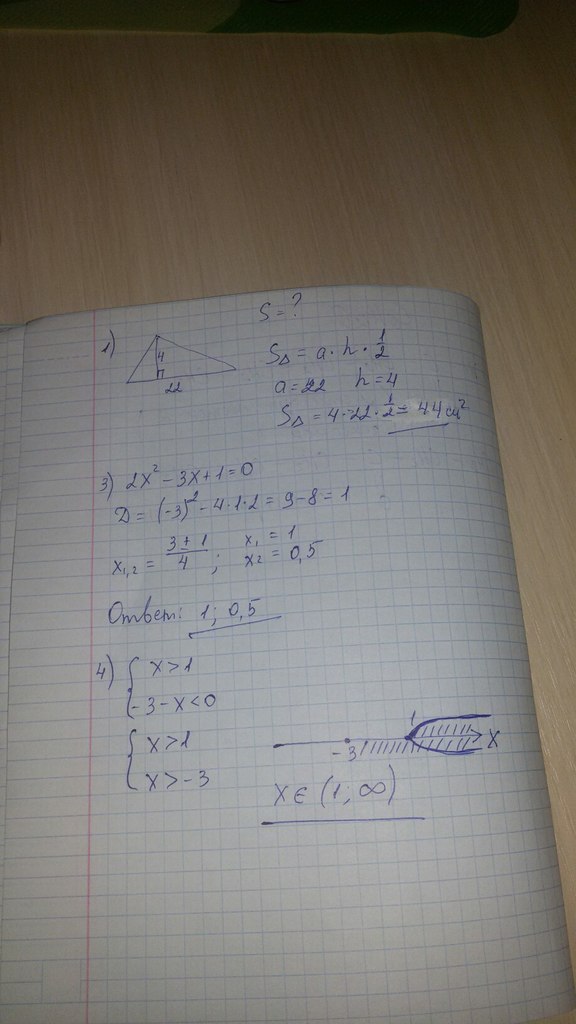 S = ?
1)
4
22
S△ = a · h · 1/2
a = 22 h = 4
S△ = 4 · 22 · 1/2 = 44 см²
3) 2x² - 3x + 1 = 0
D = (-3)² - 4 · 1 · 2 = 9 - 8 = 1
x₁,₂ = (3 ± 1)/4 ; x₁ = 1
x₂ = 0,5
Ответ: 1; 0,5
4) { x > 1
-3 - x < 0
{ x > 1
x > -3
-3 1 x
x ∈ (1, ∞)